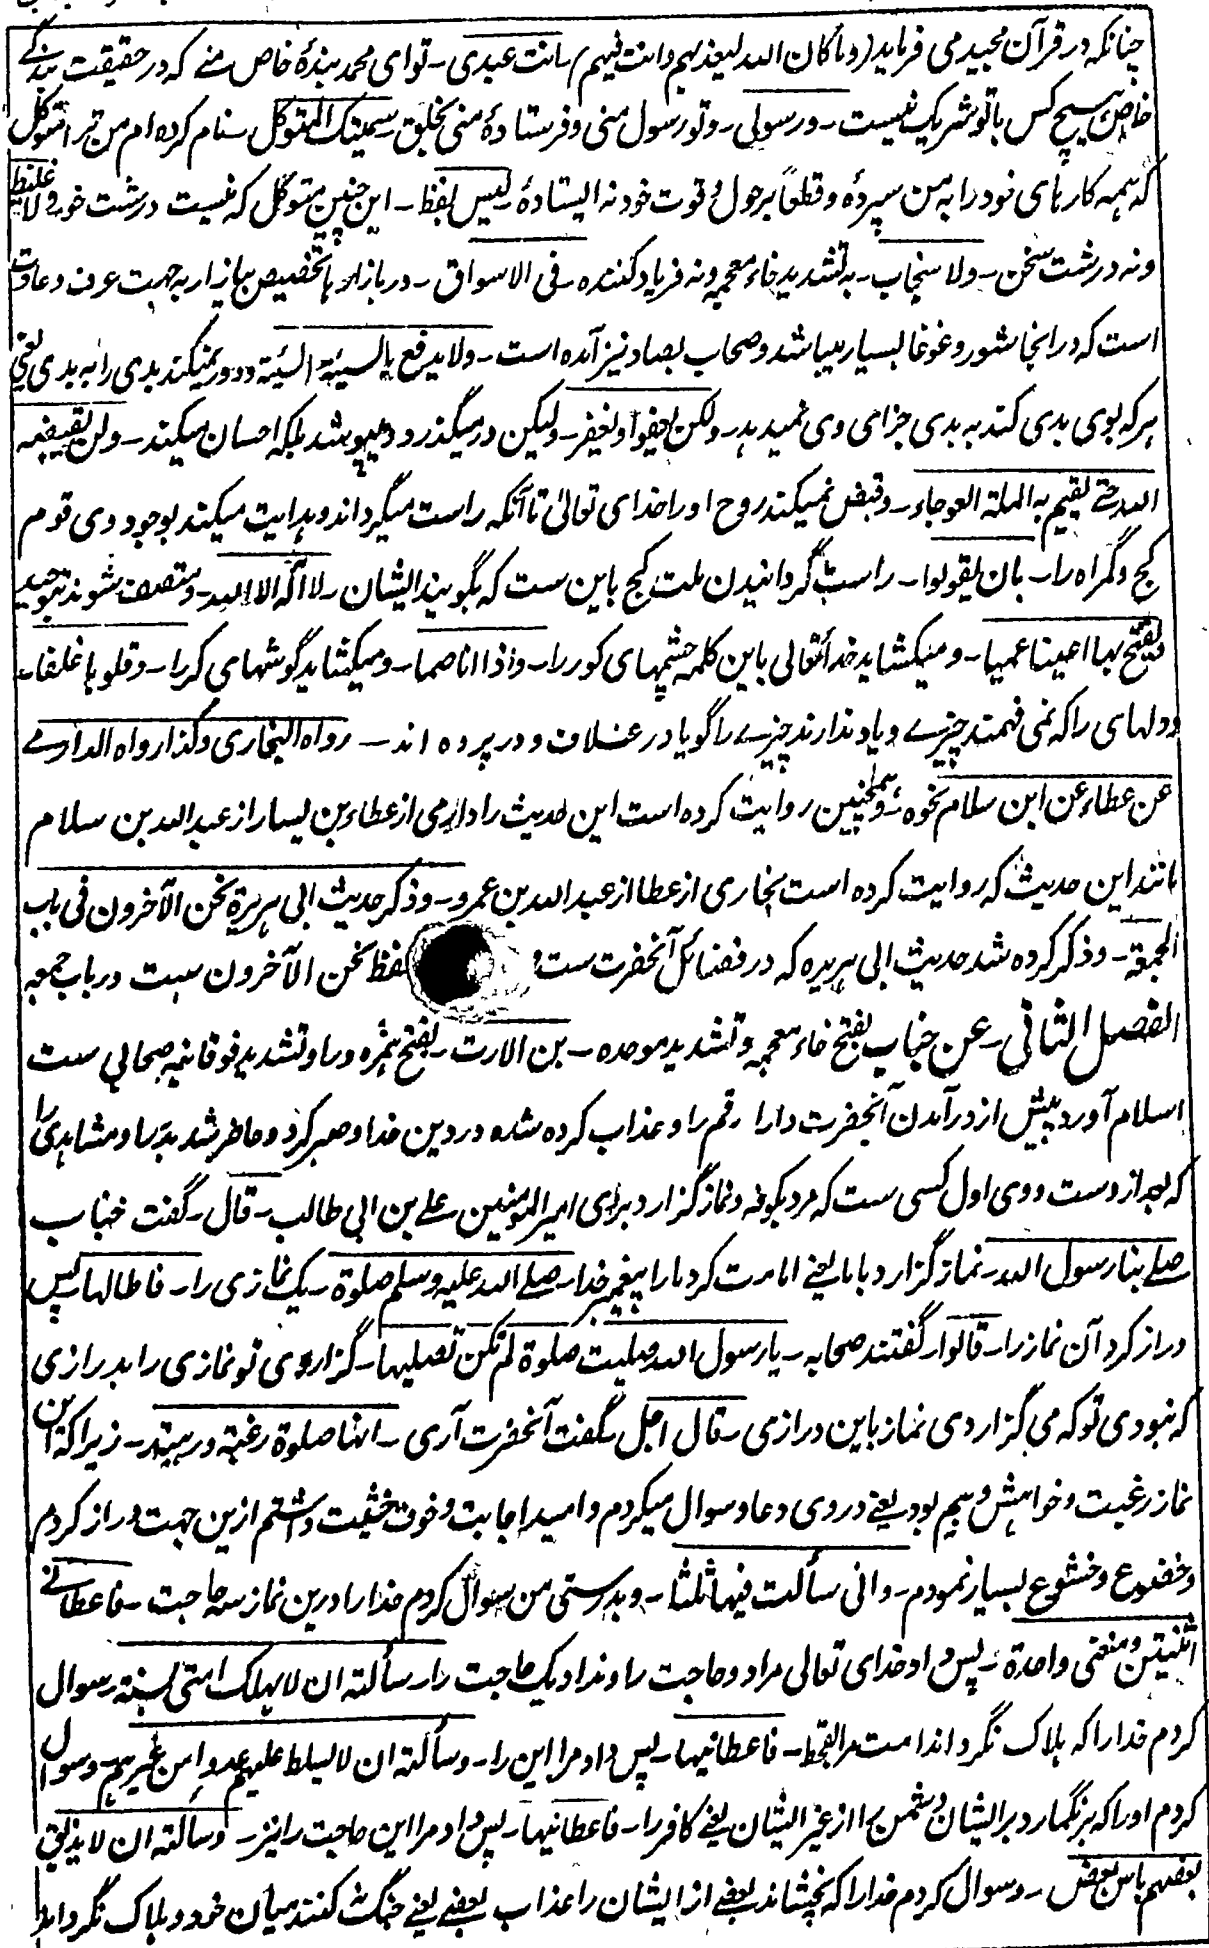 چنانکه در قرآن مجید می فرماید (وما کان الله لیعذبهم وانت فیهم) انت عبدی ـ تو ای محمد بندهٔ خاص منے که در حقیقت بندگے
خاص هیچ کس با تو شریک نیست ـ ورسولی ـ وتو رسول منی وفرستادهٔ منی بخلق ـ سمیتک المتوکل ـ نام کرده ام من ترا متوکل
که همه کارهای خود را به من سپردهٔ و قطعاً بر حول و قوت خود نه ایستادهٔ ـ لیس بفظ ـ این چنین متوکل که نیست درشت خو ولا غلیظ
ونه درشت سخن ـ ولا سخاب ـ به تشدید خاء معجمه ونه فریاد کننده ـ فی الاسواق ـ در بازارها تخصیص ببازار به جهت عرف وعادت
است که در انجا شور وغوغا بسیار میباشد وصحاب بصاد نیز آمده است ـ ولا یدفع بالسیئة السیئة ودور نمیکند بدی را به بدی یعنی
هرکه بوی بدی کند به بدی جزای وی نمیدهد ـ ولکن یعفوا ویغفر ـ ولیکن درمیگذرد و میپوشد بلکه احسان میکند ـ ولن یقبضه
الله حتے یقیم به الملة العوجاء ـ وقبض نمیکند روح او را خدای توالیٰ تا آنکه راست میگرداند وهدایت میکند بوجود وی قوم
کج وگمراه را ـ بان یقولوا ـ راست گردانیدن ملت کج باین ست که بگویند ایشان ـ لا اله الا الله ـ ومتصف شوند بتوحید
ویفتح بها اعینا عمیا ـ ومیکشاید خدا تعالی باین کلمه چشمهای کور را ـ واذانا صما ـ ومیکشاید گوشهای کر را ـ وقلوبا غلفاء
ودلهای را که نمی فهمند چیزے ویاد ندارند چیزے را گویا در غلاف و در پرده اند ـ رواه البخاری وکذا رواه الدارمے
عن عطاء عن ابن سلام نحوه ـ وهمچنین روایت کرده است این حدیث را دارمی از عطاء بن یسار از عبد الله بن سلام
مانند این حدیث که روایت کرده است بخاری از عطا از عبد الله بن عمرو ـ وذکر حدیث ابی هریرة نحن الآخرون فی باب
الجمعة ـ وذکر کرده شد حدیث ابی هریره که در فضائل آنحضرت ست و لفظ نحن الآخرون سبت در باب جمعه
الفصل الثانی ـ عن خباب بفتح خاء معجمه وتشدید موحده ـ بن الارت ـ بفتح همزه ورا وتشدید فوقانیه صحابی ست
اسلام آورد پیش از در آمدن آنحضرت دار ارقم را وعذاب کرده شده در دین خدا وصبر کرد وحاضر شد بدر را ومشاهدی را
که بعد از وست ووی اول کسی ست که مرد بکوفه ونماز گزارد بروی امیر المومنین علے بن ابی طالب ـ قال ـ گفت خباب
صلے بنا رسول الله ـ نماز گزارد با ما یعنے امامت کرد ما را پیغمبر خدا ـ صلے الله علیه وسلم صلوة ـ یک نمازی را ـ فاطالها ـ پس
دراز کرد آن نماز را ـ قالوا ـ گفتند صحابه ـ یا رسول الله صلیت صلوة لم تکن تصلیها ـ گزاردی تو نمازی را بدرازی
که نبودی تو که می گزاردی نماز باین درازی ـ قال اجل ـ گفت آنحضرت آری ـ انها صلوة رغبة ورهبة ـ زیرا که این
نماز رغبت وخواهش وبیم بود یعنے در وی دعا وسوال میکردم وامید اجابت وخوف خشیت داشتم ازین جهت دراز کردم
وخضوع وخشوع بسیار نمودم ـ وانی سألت فیها ثلثا ـ وبدرستی من سوال کردم خدا را درین نماز سه حاجت ـ فاعطانے
اثنتین ومنعنی واحدة ـ پس داد خدای تعالی مرا دو حاجت را ونداد یک حاجت را ـ سألته ان لا یهلک امتی بسنة ـ سوال
کردم خدا را که هلاک نگرداند امت مرا بقحط ـ فاعطانیها ـ پس داد مرا این را ـ وسألته ان لا یسلط علیهم عدوا من غیرهم ـ وسوال
کردم او را که برنگمارد بر ایشان دشمن را از غیر ایشان یعنے کافر را ـ فاعطانیها ـ پس داد مرا این حاجت را نیز ـ وسألته ان لا یذیق
بعضهم باس بعض ـ وسوال کردم خدا را که نچشاند بعضے از ایشان را عذاب بعضے یعنے جنگ کنند میان خود وهلاک نگرداند